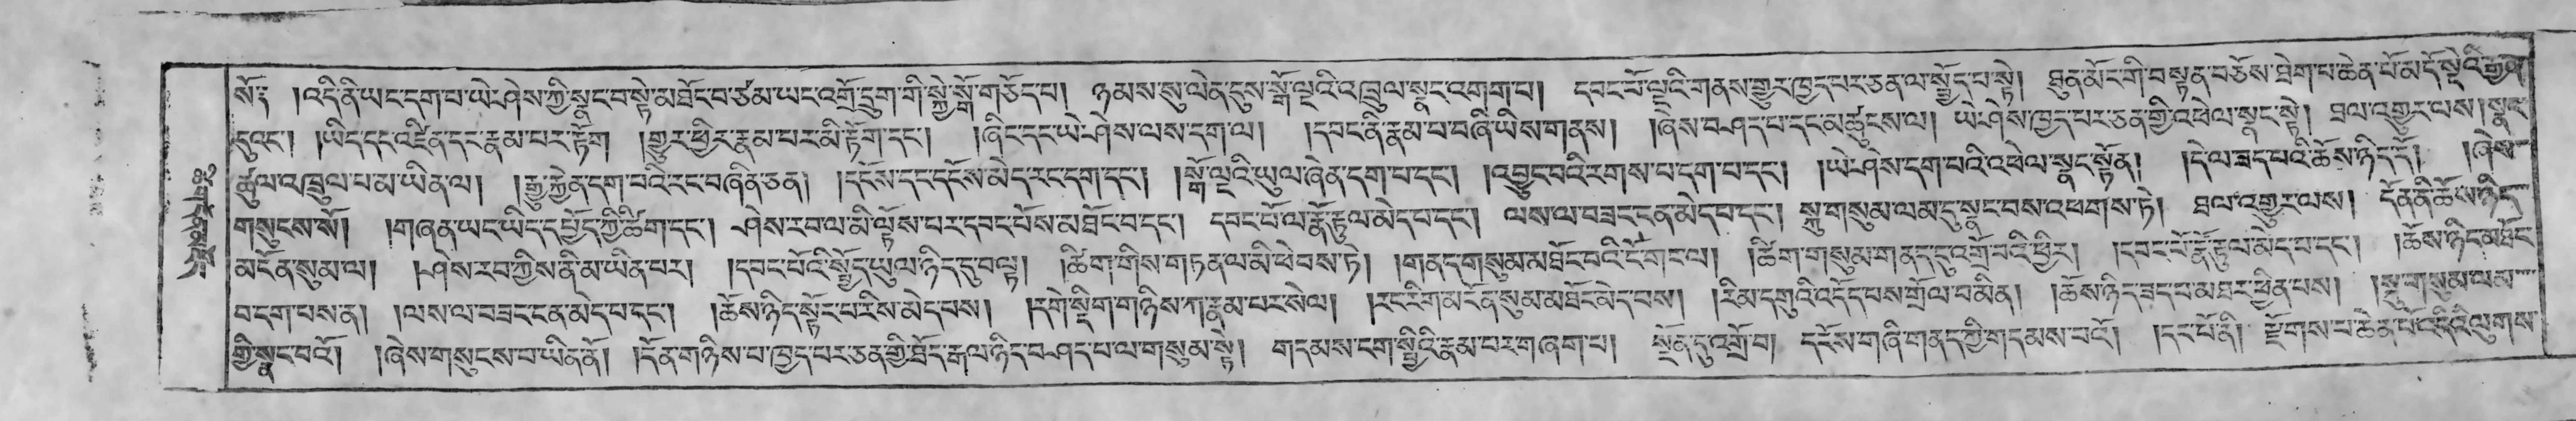 སོ༔ །འདི་ནི་ཡང་དག་པ་ཡེ་ཤེས་ཀྱི་སྣང་བ་སྟེ་མཐོང་བ་ཙམ་ཡང་འགྲོ་དྲུག་གི་སྐྱེ་སྒོ་གཅོད་པ། ཉམས་སུ་ལེན་དུས་སྒོ་ལྔའི་འཁྲུལ་སྣང་འགག་པ། དབང་པོ་ལྔའི་གནས་གྱུར་ཁྱད་པར་ཅན་ལ་སྦྱོད་པ་སྟེ། ཐུན་མོང་གི་བསྟན་བཅོས་ཐེག་པ་ཆེན་པོ་མདོ་སྡེའི་རྒྱན་
དུའང་། །ཡིད་དང་འཛིན་དང་རྣམ་པར་རྟོག །གྱུར་ཕྱིར་རྣམ་པར་མི་རྟོག་དང་། །ཞིང་དང་ཡེ་ཤེས་ལས་དག་ལ། །དབང་ནི་རྣམ་པ་བཞི་ཡིས་གནས། །ཞེས་བཤད་པ་དང་མཚུངས་ལ། ཡེ་ཤེས་ཁྱད་པར་ཅན་གྱི་འཕེལ་སྣང་སྟེ། ཐལ་འགྱུར་ལས། །སྣང་
ཚུལ་འཁྲུལ་པ་མ་ཡིན་ལ། །རྒྱུ་རྐྱེན་དག་པའི་རང་བཞིན་ཅན། །དངོས་དང་དངོས་མེད་རང་དག་དང་། །སྒོ་ལྔའི་ཡུལ་ཞེན་དག་པ་དང་། །འབྱུང་བའི་རིགས་པ་དག་པ་དང་། །ཡེ་ཤེས་དག་པའི་འཕེལ་སྣང་སྟོན། །དེ་ལ་ཟད་པའི་ཆོས་ཉིད་དོ། །ཞེས་
གསུངས་སོ། །གཞན་ཡང་ཡིད་དཔྱོད་ཀྱི་ཚིག་དང་། ཤེས་རབ་ལ་མི་ལྟོས་པར་དབང་པོས་མཐོང་བ་དང་། དབང་པོ་ལ་རྣོ་རྟུལ་མེད་པ་དང་། ལས་ལ་བཟང་ངན་མེད་པ་དང་། སྐུ་གསུམ་ལམ་དུ་སྣང་བས་འཕགས་ཏེ། ཐལ་འགྱུར་ལས། དོན་ནི་ཆོས་ཉིད་
མངོན་སུམ་ལ། །ཤེས་རབ་ཀྱིས་ནི་མ་ཡིན་པར། །དབང་པོའི་སྤྱོད་ཡུལ་ཉིད་དུ་བལྟ། །ཚིག་གིས་གཏན་ལ་མི་ཕེབས་ཏེ། །གནད་གསུམ་མཐོང་བའི་ངོ་གང་ལ། །ཚིག་གསུམ་གནད་དུ་འགྲོ་བའི་ཕྱིར། །དབང་པོ་རྣོ་རྟུལ་མེད་པ་དང་། །ཆོས་ཉིད་མཐོང་
བ་དག་པས་ན། །ལས་ལ་བཟང་ངན་མེད་པ་དང་། །ཆོས་ཉིད་སྟོང་པ་རིས་མེད་པས། །དགེ་སྡིག་གཉིས་ཀ་རྣམ་པར་སེལ། །རང་རིག་མངོན་སུམ་མཐོང་མེད་པས། །རིམ་དགུའི་འདོད་པས་གྲོལ་བ་མིན། །ཆོས་ཉིད་ཟད་པ་མཐར་ཕྱིན་པས། །སྐུ་གསུམ་ལམ་
གྱི་སྣང་བའོ། །ཞེས་གསུངས་པ་ཡིན་ནོ། །དོན་གཉིས་པ་ཁྱད་པར་ཅན་གྱི་ཐོད་རྒལ་ཉིད་བཤད་པ་ལ་གསུམ་སྟེ། གདམས་ངག་སྤྱིའི་རྣམ་པར་གཞག་པ། སྔོན་དུ་འགྲོ་བ། དངོས་གཞི་གནད་ཀྱི་གདམས་པའོ། །དང་པོ་ནི། རྫོགས་པ་ཆེན་པོ་འདིའི་ལུགས་